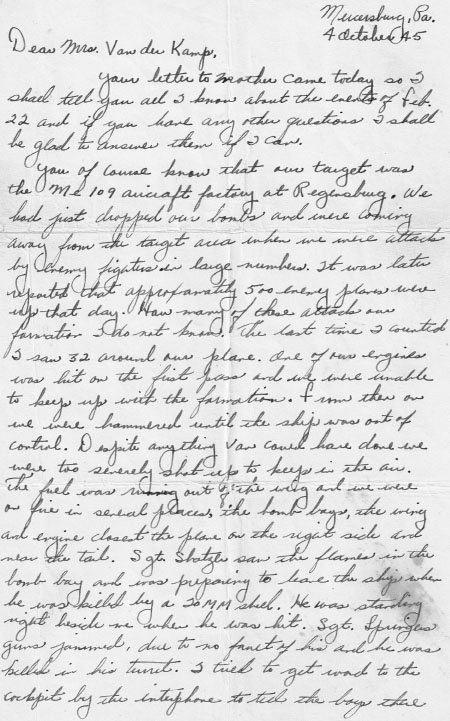 Mercersburg, Pa.
4 October 45
Dear Mrs. Van der Kamp,
Your letter to mother came today so I
shall tell you all I know about the events of Feb.
22 and if you have any other questions I shall
be glad to answer them if I can.
You of course know that our target was
the Me 109 aircraft factory at Regensburg. We
had just dropped our bombs and were coming
away from the target area when we were attack
by enemy fighters in large numbers. It was later
reported that approxamately 500 enemy planes were
up that day. How many of these attack our
formation I do not know. The last time I counted
I saw 32 around our plane. One of our engines
was hit on the first pass and we were unable
to keep up with the formation. From then on
we were hammered until the ship was out of
control. Despite anything Van could have done we
were too severely shot up to keep in the air.
The fuel was running out of the wing and we were
on fire in several places, the bomb bays, the wing
and engine closest the plane on the right side and
near the tail. Sgt. saw the flames in the
bomb bay and was preparing to leave the ship when
he was killed by a 20 MM shell. He was standing
right beside me when he was hit. Sgt.
guns jammed, due to no fault of his and he was
killed in his turret. I tried to get word to the
cockpit by the interphone to tell the boys there